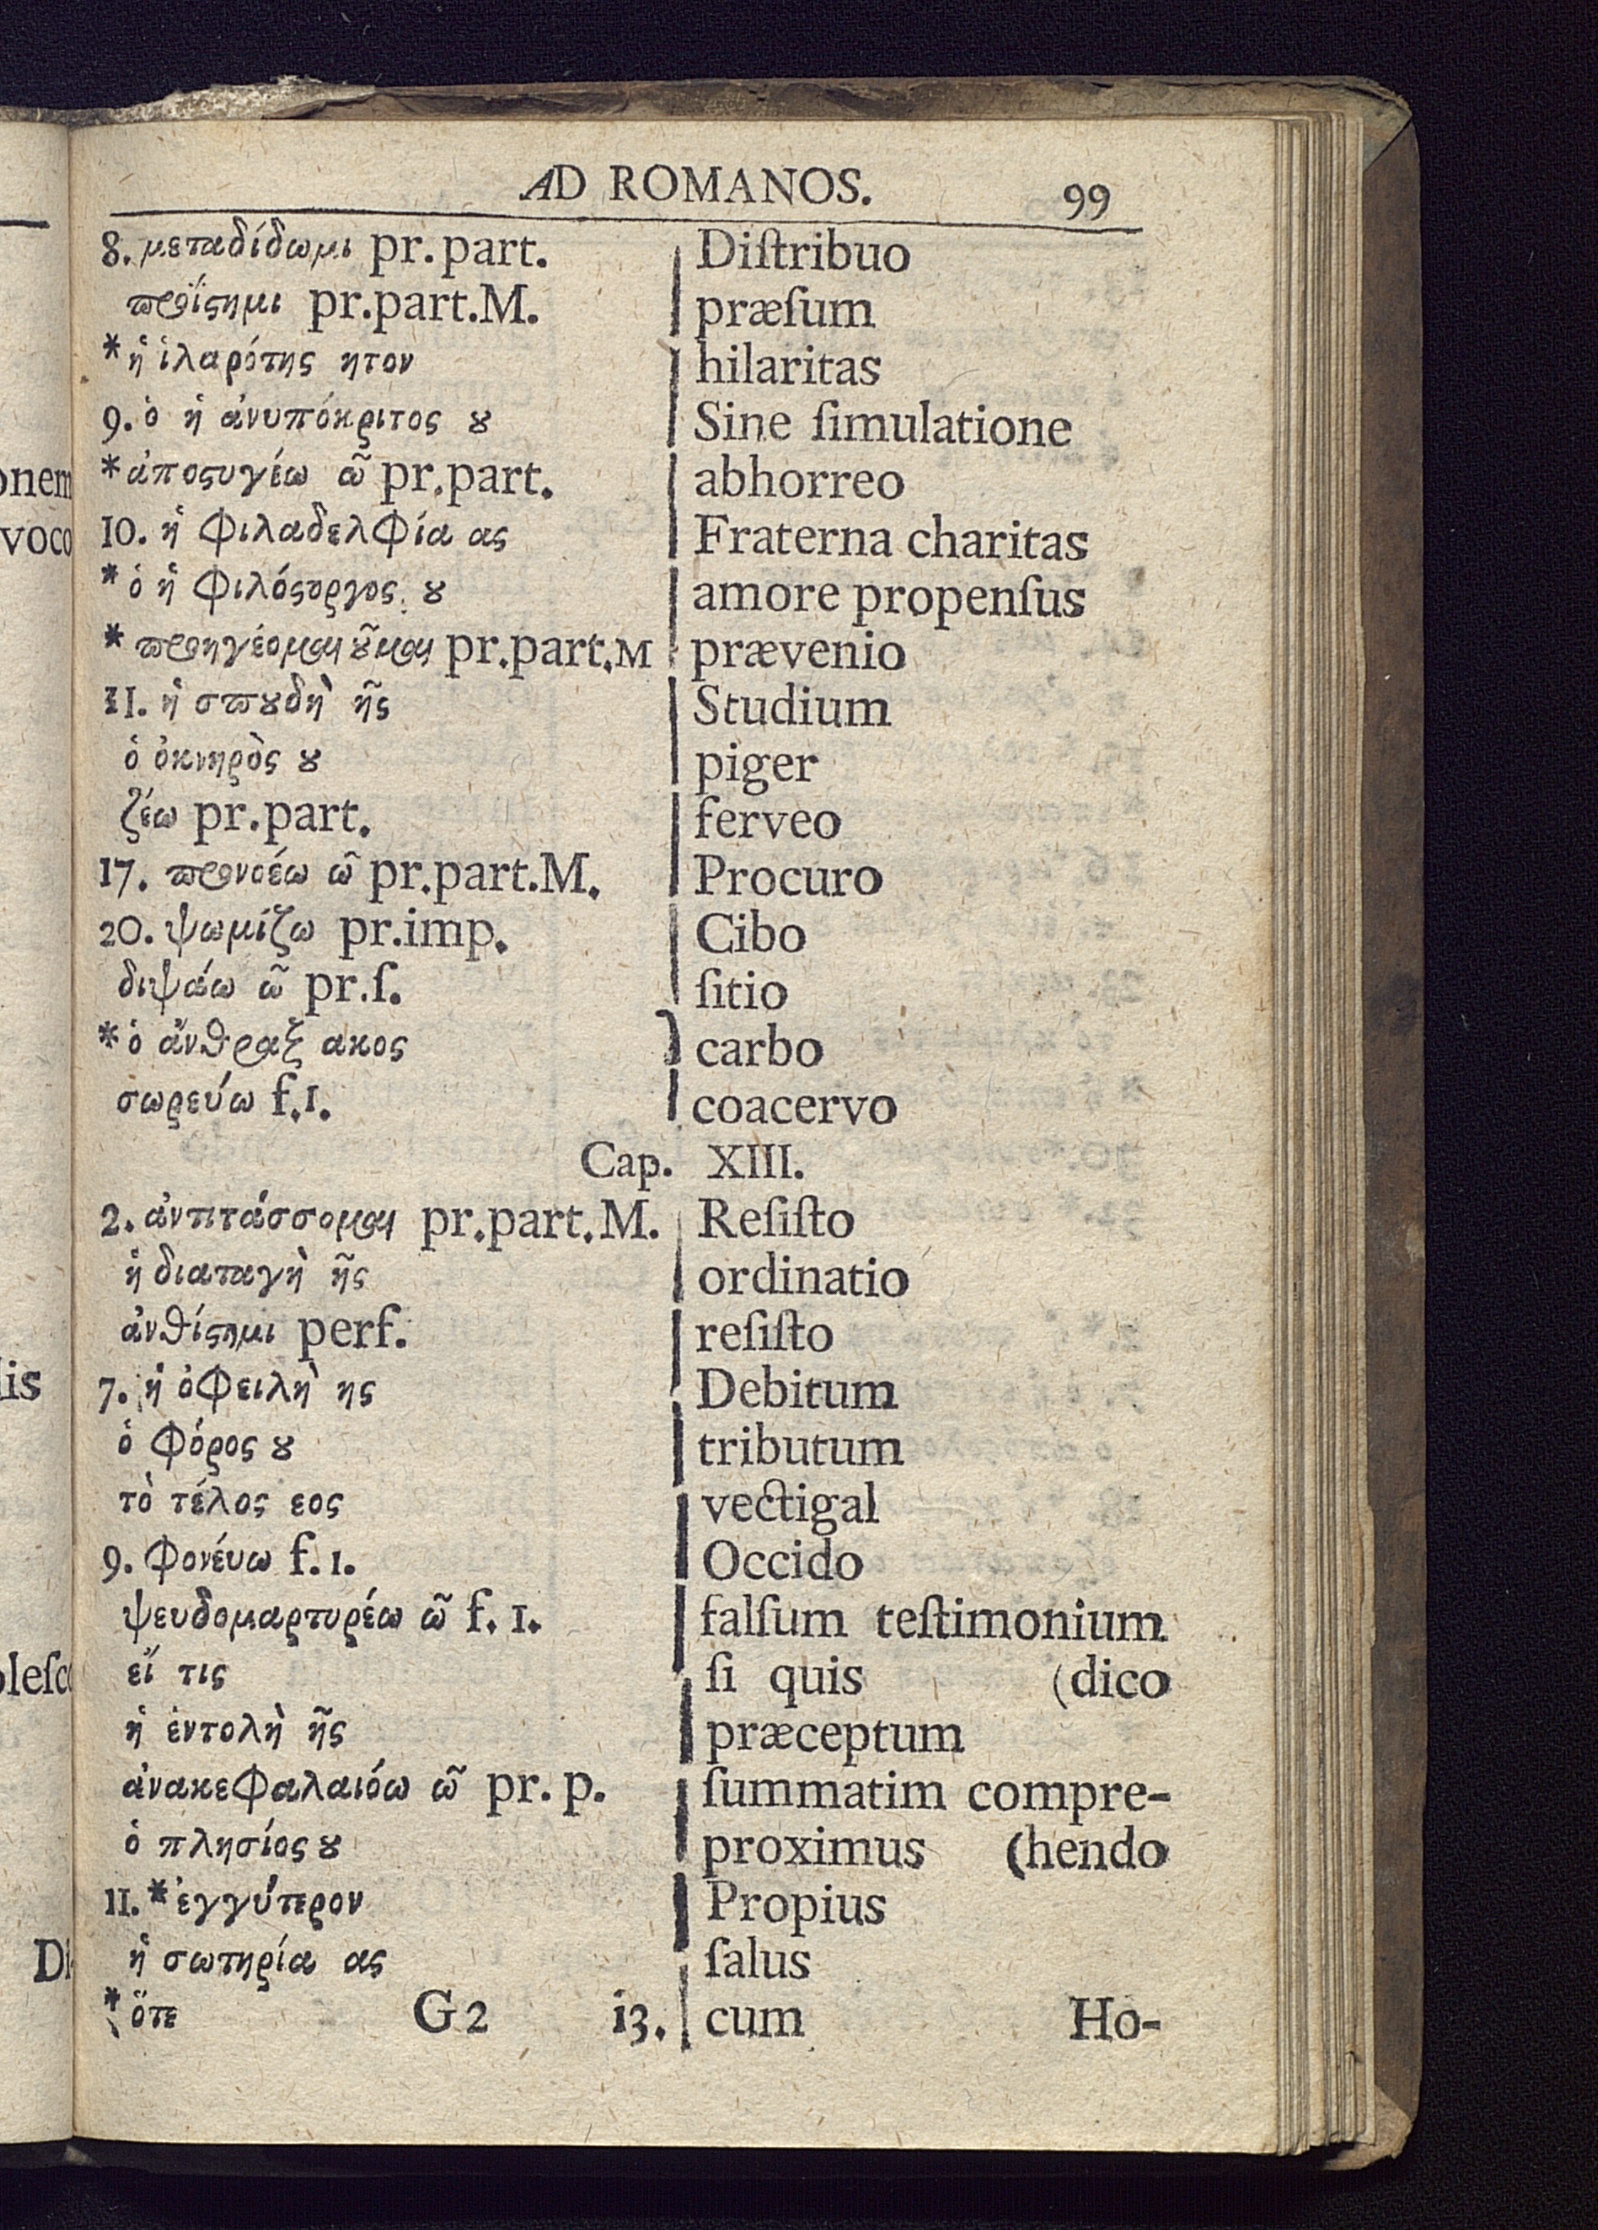 AD ROMANOS. 99
8. μεταδίδωμι pr. part. Diſtribuo
προΐϛημι pr.part.M. præſum
* ἡ ἱλαρότης ητον hilaritas
9. ὁ ἡ ἀνυπόκριτος ȣ Sine ſimulatione
* ἀποϛυγέω ῶ pr.part. abhorreo
10. ἡ φιλαδελφία ας Fraterna charitas
* ὁ ἡ φιλόϛοργος ȣ amore propenſus
* προηγέομαι ȣ͂μαι pr.part.M prævenio
11. ἡ σπȣδὴ ῆς Studium
ὁ ὀκνηρὸς ȣ piger
ζέω pr.part. ferveo
17. προνοέω ῶ pr.part.M. Procuro
20. ψωμίζω pr.imp. Cibo
διψάω ῶ pr.ſ. ſitio
* ὁ ἄνθραξ ακος carbo
σωρεύω f.1. coacervo
Cap. XIII.
2. ἀντιτάσσομαι pr.part.M. Reſiſto
ἡ διαταγὴ ῆς ordinatio
ἀνθίϛημι perf. reſiſto
7. ἡ ὀφειλὴ ης Debitum
ὁ φόρος ȣ tributum
τὸ τέλος εος vectigal
9. φονέυω f. 1. Occido
ψευδομαρτυρέω ῶ f. 1. falſum teſtimonium
εἴ τις ſi quis (dico
ἡ ἐντολὴ ῆς præceptum
ἀνακεφαλαιόω ῶ pr. p. ſummatim compre-
ὁ πλησίος ȣ proximus (hendo
11. * ἐγγύτερον Propius
ἡ σωτηρία ας ſalus
* ὅτε cum
G 2 13. Ho-
onem
voco
lis
oleſco
Di-